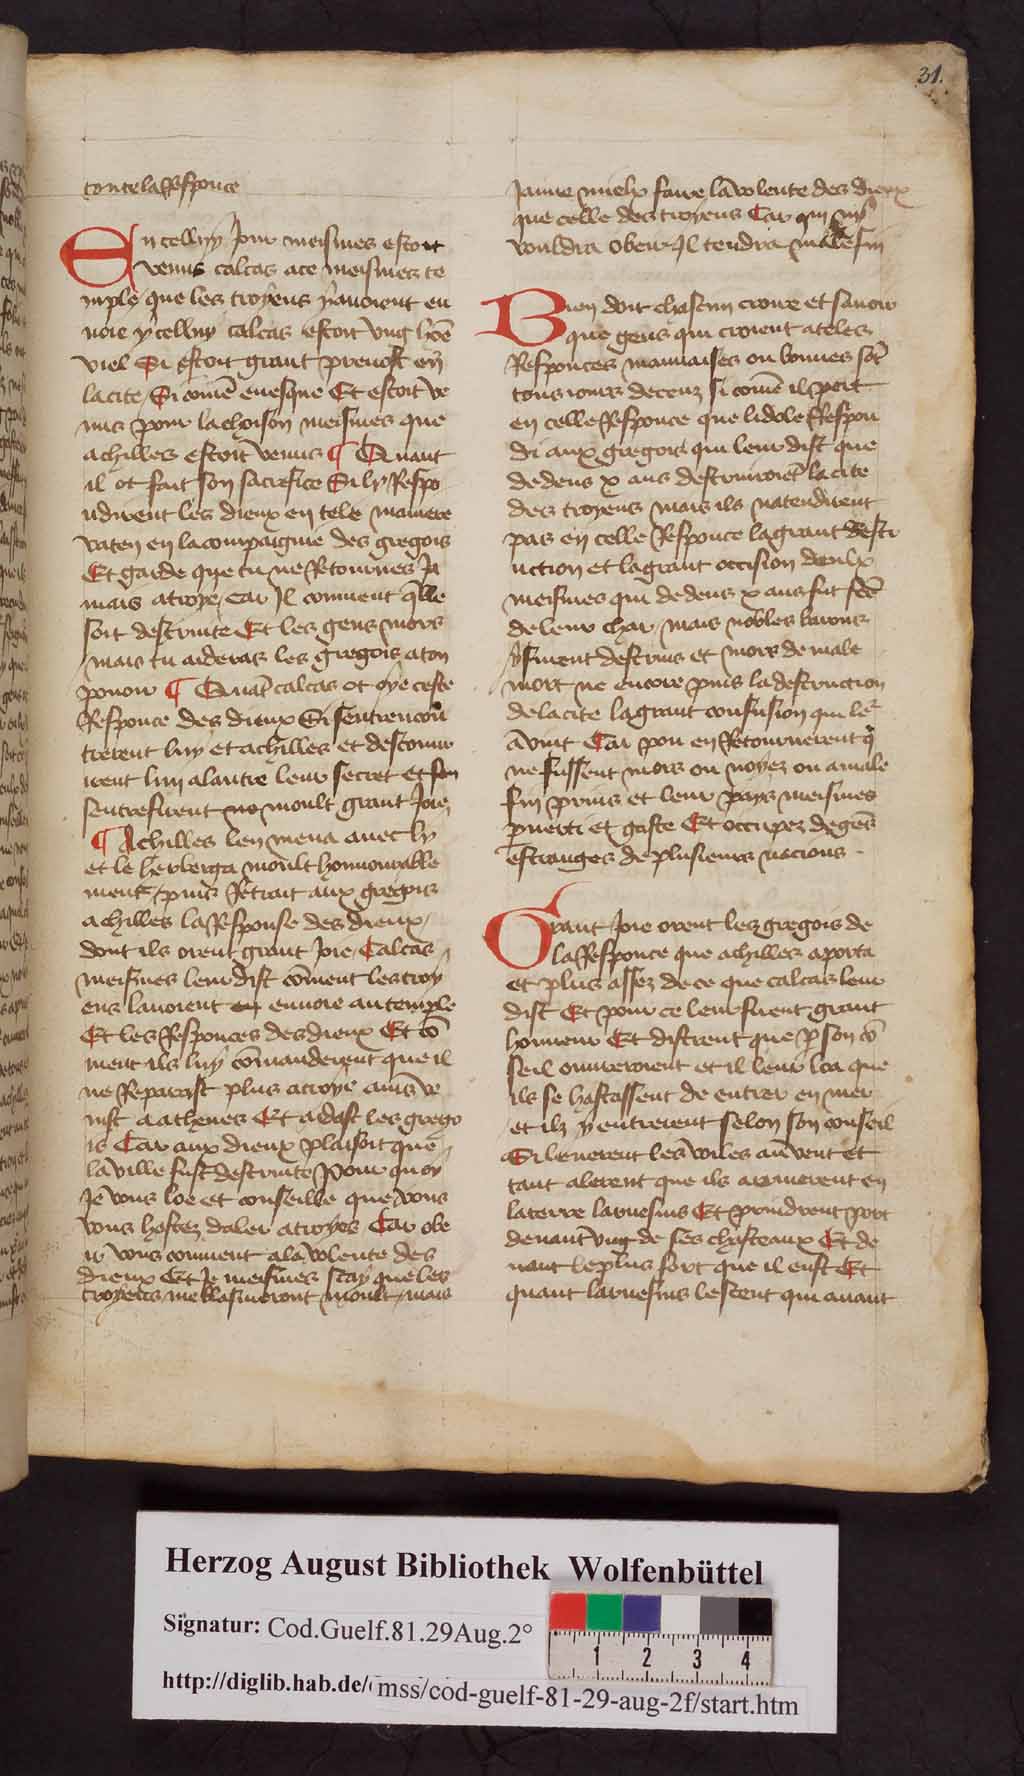 31.
toute la Response
En celluy Jour meismes estoit
venus calcas a ce meismes te
mple que les troyens y auoient en
uoie ycelluy calcas estoit vng hõe
viel Si estoit grant preuost en
la cite Si comẽ euesque Et estoit ve
nus pour lachoison meismes que
achilles estoit venus ¶ Quant
il ot fait son sacrefice Si ly Respo
ndirent les dieux en tele maniere
vaten en la compaignie des gregois
Et garde que tu ne Retournes Ja
mais a troye car Jl conuient q̃lle
soit destruite Et les gens mors
mais tu aideras les gregois a ton
pouoir ¶ Quãt calcas ot oye ceste
Response des dieux Si sentrencon
trerent luy et achilles et descouur
irent lun a lautre leur secret et son
sentrefirent moult grant Joie
¶ Achilles len mena auec ly
et le herberga moult honnourable
ment puis Retrait aux gregois
achilles la Response des dieux
dont ils orent grant Joie Calcas
meismes leur dist cõment les troy
ens lauoient enuoie au temple
Et les Responces des dieux Et cõ
ment ils luy cõmanderent que il
ne Repairast plus a troye ains ve
nist a athenes Et aidast les grego
is Car aux dieux plaisoit que
la ville fust destruite Pour quoy
Je vous loe et conseille que vous
vous hastez daler a troyes Car obe
ir vous conuient a la volente des
dieux Et Je meismes scay que les
troyens me blasmeront moult mais
Jaime mielx faire la volente des dieux
que celle des troyens Car qui ny
vouldra obeir Jl tendra male fin
Bien doit chascun croire et sauoir
que gens qui croient a teles
Responces mauuaises ou bonnes sõt
tous iours deceuz si comẽ il pert
en celle Responce que lidole Respon
di aux gregois qui leur dist que
dedens x ans destruiroiẽt la cite
des troyens mais ils natendirent
pas en celle Responce la grant destr
uction et la grant occision deulx
meismes qui dedens x ans fut fcẽ
de leur char mais nobles barons
y furent destruis et mors de male
mort ne encore puis la destruction
de la cite la grant confusion qui leᷣ
auint Car pou en Retournerent q̃
ne fussent mors ou noyez ou a male
fin prins et leur pays meismes
p̲uerti et gaste Et occupez de gẽs
estranges de plusieurs nacions
Grant Joie orent les gregois de
la Responce que achilles aporta
et plus assez de ce que calcas leur
dist Et pour ce leur firent grant
honneur Et distrent que p̲ son cõ
seil ouureroient et il leur loa que
ils se hastassent de entrer en mer
et ilz y entrerent selon son conseil
Si leuerent les voiles au vent et
tant alerent que ils arriuerent en
la terre larnesius Et prindrent port
deuant vng de ses chasteaux Et de
uant le plus fort que il eust Et
quant larnesius lescent qui auant
Herzog August Bibliothek Wolfenbüttel
Signatur: Cod.Guelf.81.29Aug.2°
http://diglib.hab.de/ mss/cod-guelf-81-29-aug-2f/start.htm
1 2 3 4